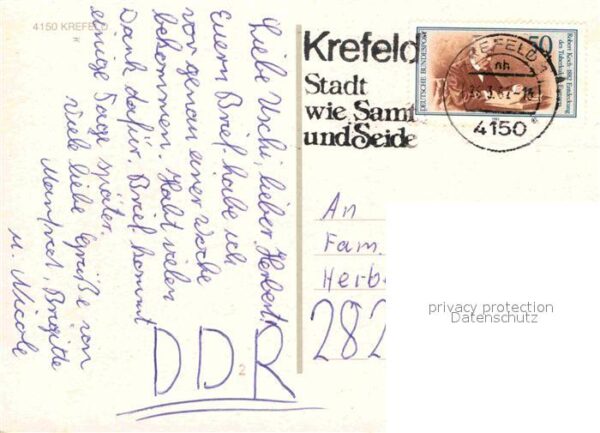 4150 KREFELD
Liebe Uschi, lieber Herbert!
Euern Brief habe ich
vor genau einer Woche
bekommen. Habt vielen
Dank dafür. Brief kommt
einige Tage später.
Viele liebe Grüße von
Manfred, Brigitte
u. Nicole
DDR
2
Krefeld
Stadt
wie Samt
und Seide
KREFELD 1
nh
4150
50
Robert Koch · 1882 Entdeckung
des Tuberkulose-Erregers
DEUTSCHE BUNDESPOST
An
Fam.
Herb
282
privacy protection
Datenschutz